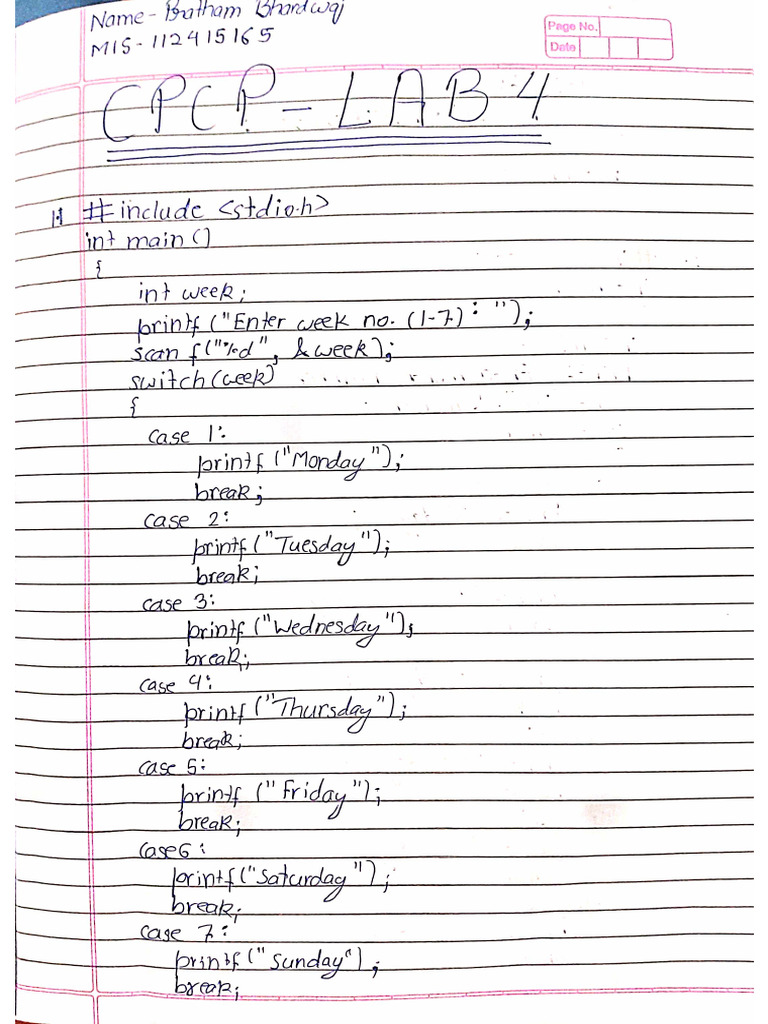 Name- Pratham Bhardwaj
MIS - 112415165
Page No.
Date
CPCP - LAB 4
1.) #include <stdio.h>
int main()
{
int week;
printf ("Enter week no. (1-7) : ");
scan f("%d", &week);
switch (week)
{
case 1:
printf ("Monday");
break;
case 2:
printf ("Tuesday");
break;
case 3:
printf ("Wednesday");
break;
case 4:
printf ("Thursday");
break;
case 5:
printf ("Friday");
break;
case 6:
printf ("Saturday");
break;
case 7:
printf ("Sunday");
break;